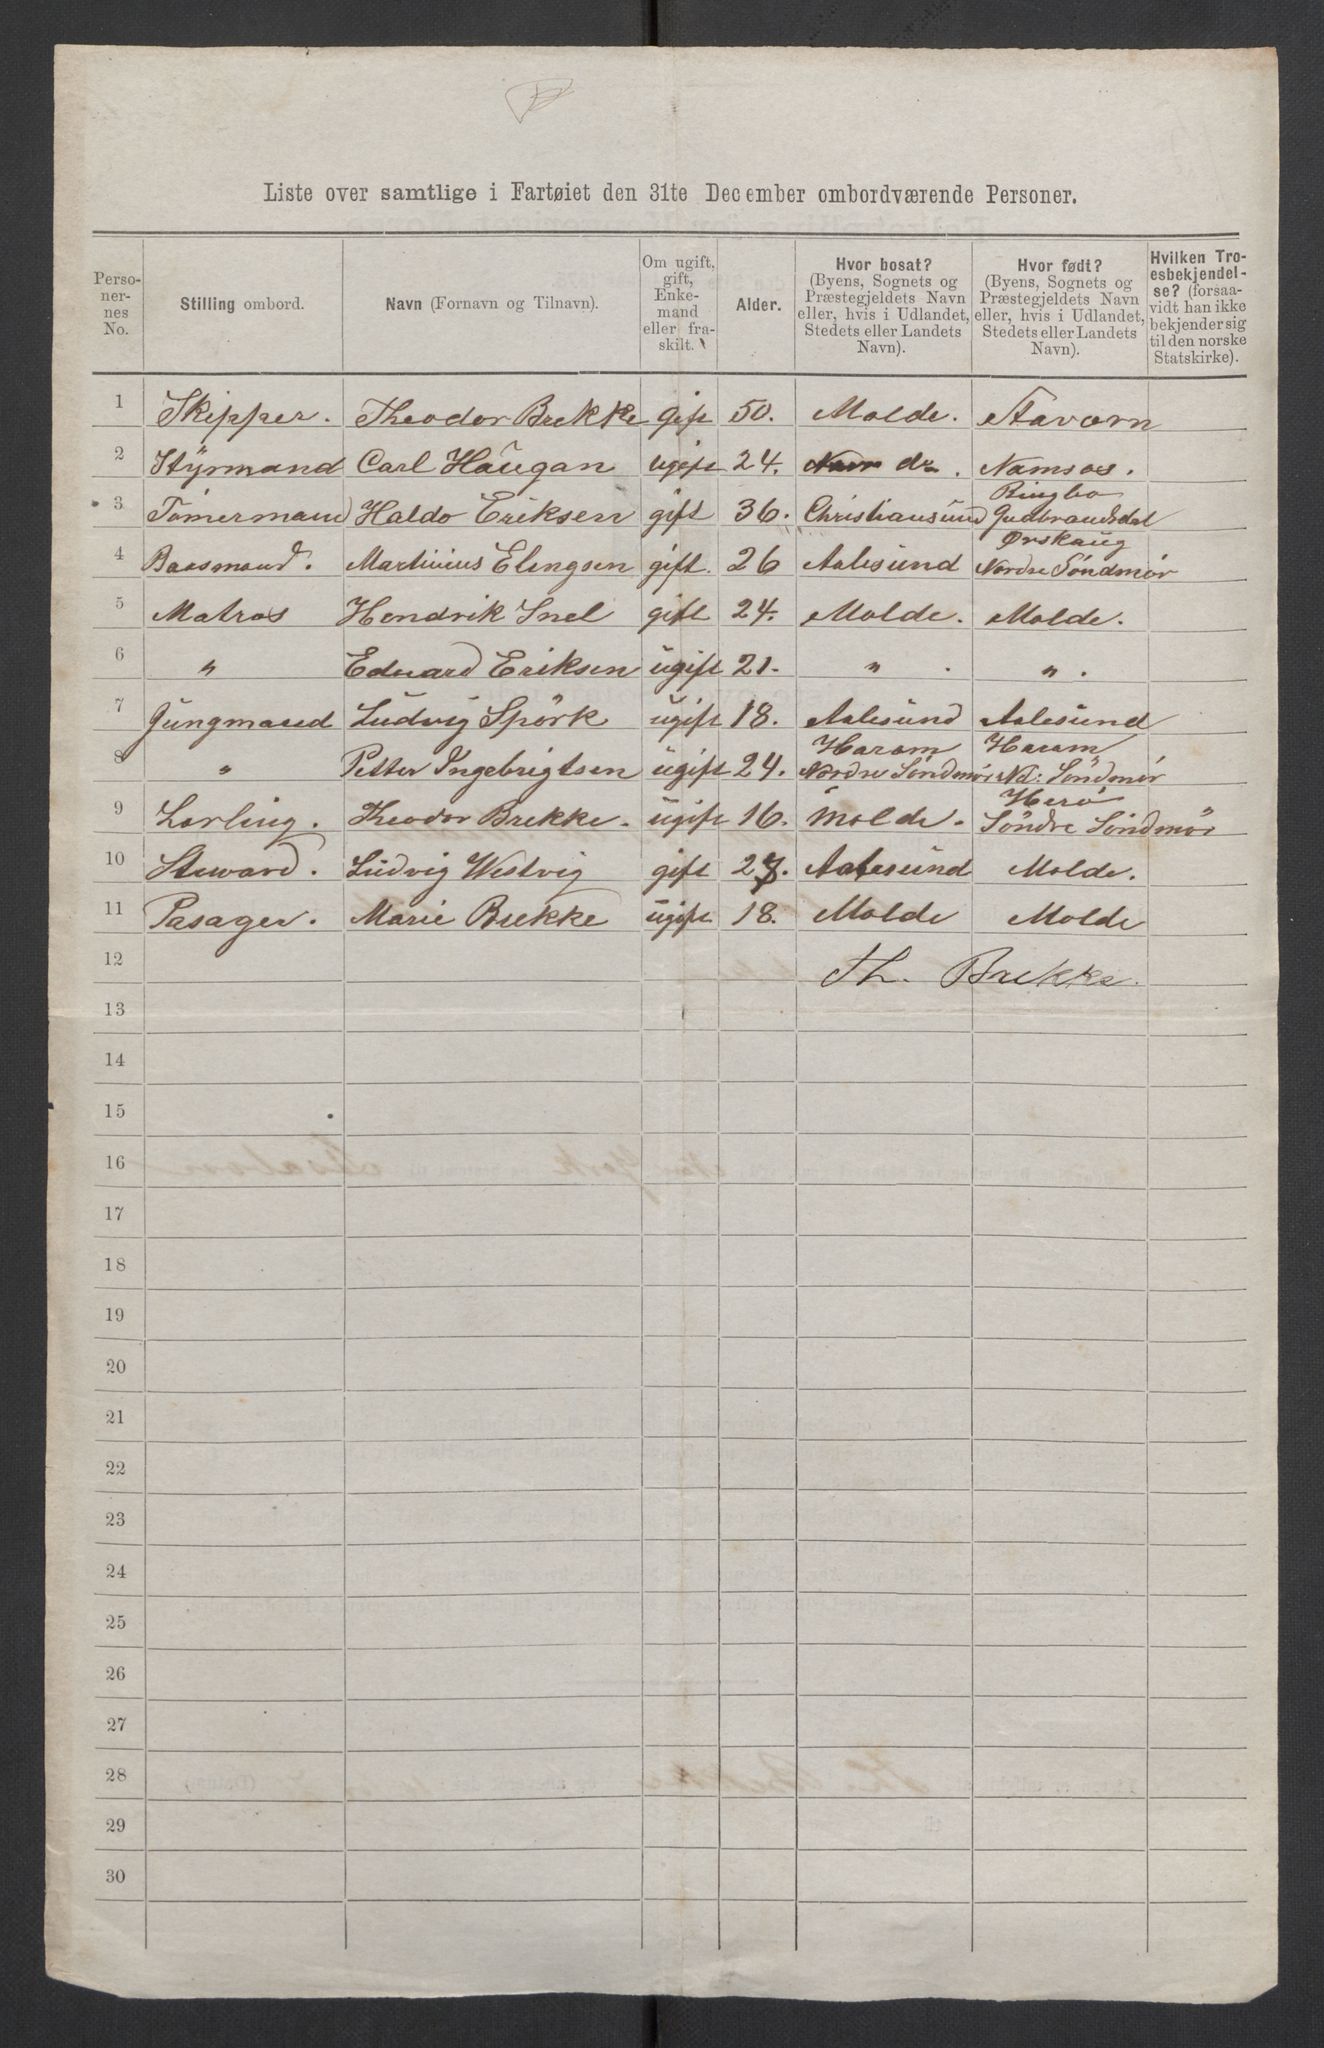 Liste over samtlige i Fartøiet den 31te December ombordværende Personer.
Perso-
ner-
nes
No.
Stilling ombord.
Navn (Fornavn og Tilnavn).
Om ugift,
gift,
Enke-
mand
eller fra-
skilt.
Alder.
Hvor bosat?
(Byens, Sognets og
Præstegjeldets Navn
eller, hvis i Udlandet,
Stedets eller Landets
Navn).
Hvor født?
(Byens, Sognets og
Præstegjeldets Navn
eller, hvis i Udlandet,
Stedets eller Landets
Navn).
Hvilken Tro-
esbekjendel-
se? (forsaa-
vidt han ikke
bekjender sig
til den norske
Statskirke).
1 Skipper. Theodor Brekke gift 50. Molde. Stavern
2 Styrmand Carl Haugan ugift 24. do. Namsos.
3 Tömermand Haldo Eriksen gift 36. Christiansund Ringbo
Gudbrandsdal
4 Baasmand. Martinius Elingsen gift. 26 Aalesund Ørskaug
Nordre Söndmör
5 Matros Hendrik Snel gift 24. Molde. Molde.
6 " Edvard Eriksen ugift 21. " . " .
7 Jungmand Ludvig Spörk ugift 18. Aalesund Aalesund
8 " Petter Ingebrigtsen ugift 24. Haram
Nordre Söndmör Haram
Nd: Söndmör
9 Lærling. Theodor Brekke. ugift 16. Molde. Herö
Söndre Söndmör
10 Steward. Ludvig Westvig gift 27. Aalesund Molde.
11 Pasager. Marie Brekke ugift 18. Molde Molde
12 Th. Brekke.
13
14
15
16
17
18
19
20
21
22
23
24
25
26
27
28
29
30